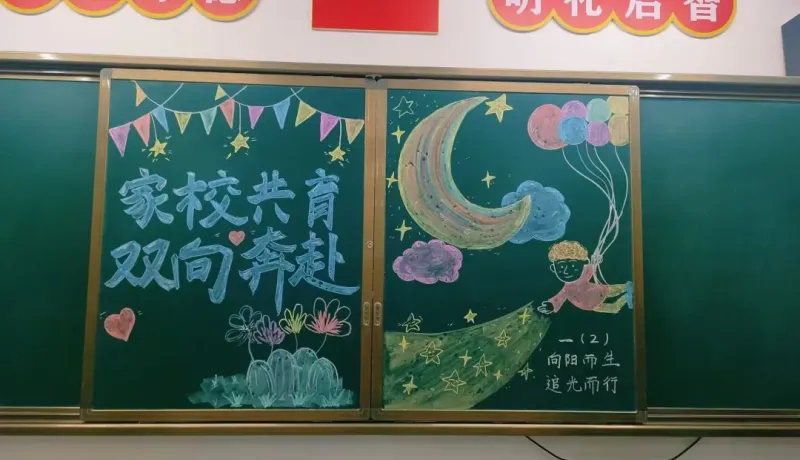 明礼启智
家校共育
双向奔赴
一（2）
向阳而生
追光而行